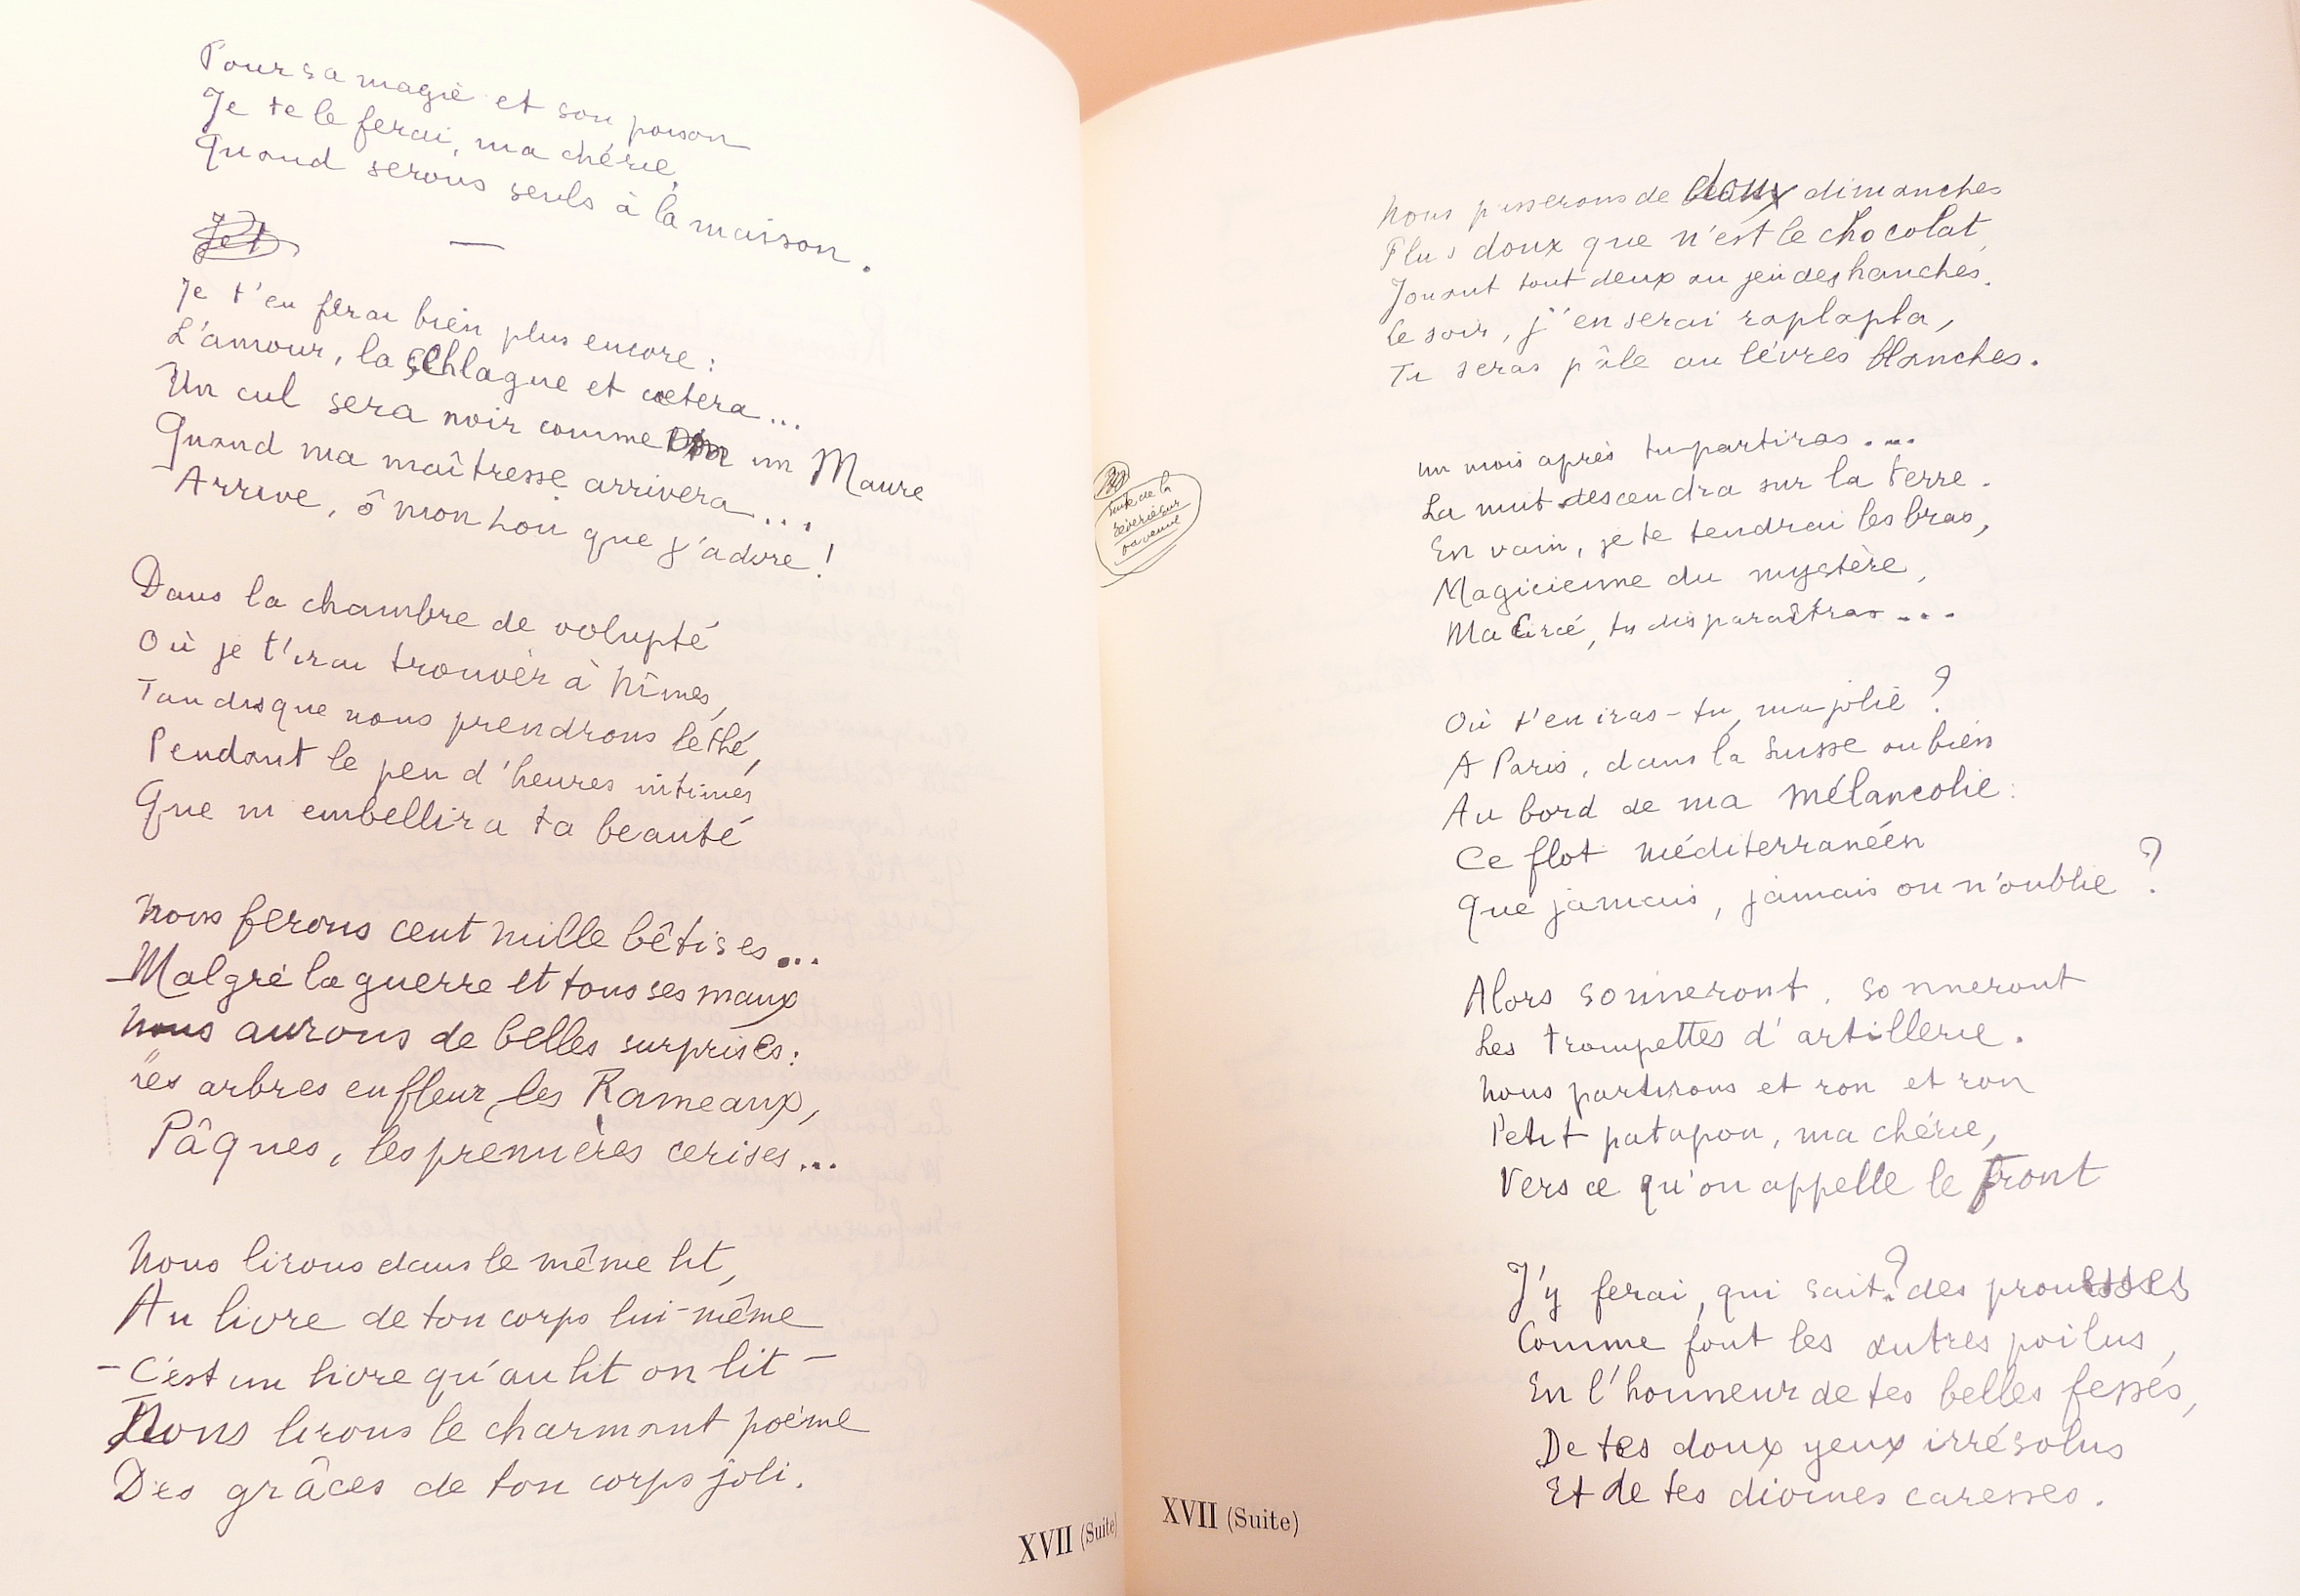 Pour sa magie et son poison
Je te le ferai, ma chérie,
Quand serons seuls à la maison.
—
Je t'en ferai bien plus encore :
L'amour, la schlague et cœtera...
Un cul sera noir comme un Maure
Quand ma maîtresse arrivera...
Arrive, ô mon Lou que j'adore !
Dans la chambre de volupté
Où je t'irai trouver à Nîmes,
Tandis que nous prendrons le thé,
Pendant le peu d'heures intimes
Que m'embellira ta beauté
Nous ferons cent mille bêtises...
Malgré la guerre et tous ses maux
Nous aurons de belles surprises :
Les arbres en fleur, les Rameaux,
Pâques, les premières cerises...
Nous lirons dans le même lit,
Au livre de ton corps lui-même
– C'est un livre qu'au lit on lit –
Nous lirons le charmant poème
Des grâces de ton corps joli.
XVII (Suite)
Nous passerons de doux dimanches
Plus doux que n'est le chocolat,
Jouant tout deux au jeu des hanches.
Le soir, j'en serai raplapla,
Tu seras pâle au lèvres blanches.
Un mois après tu partiras....
La nuit descendra sur la terre.
En vain, je te tendrai les bras,
Magicienne du mystère,
Ma Circé, tu disparaîtras...
Où t'en iras-tu, ma jolie ?
A Paris, dans la Suisse ou bien
Au bord de ma mélancolie :
Ce flot méditerranéen
Que jamais, jamais on n'oublie ?
Alors sonneront, sonneront
Les trompettes d'artillerie.
Nous partirons et ron et ron
Petit patapon, ma chérie,
Vers ce qu'on appelle le front
J'y ferai, qui sait ? des prouesses
Comme font les autres poilus,
En l'honneur de tes belles fesses,
De tes doux yeux irrésolus
Et de tes divines caresses.
suite de la
rêverie sur
ta venue
XVII (Suite)